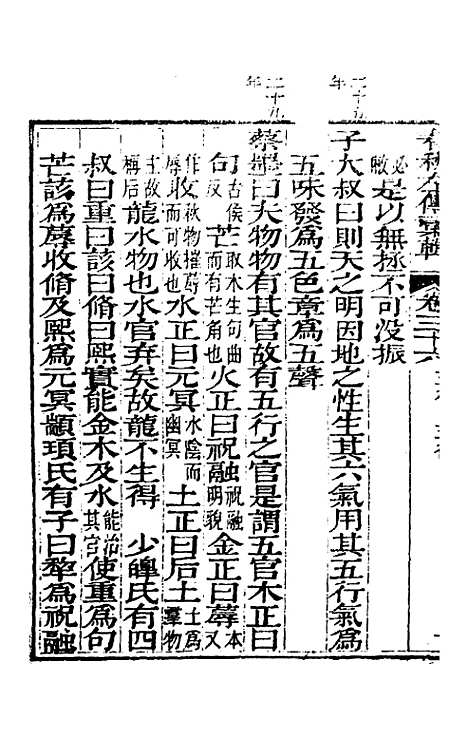 春秋左傳彙輯 卷三十六
必敝是以無拯不可没振
二十五年
子大叔曰則天之明因地之性生其六氣用其五行氣爲
五味發爲五色章爲五聲
二十九年
蔡墨曰夫物物有其官故有五行之官是謂五官木正曰
句古侯反芒取木生句曲而有芒角也火正曰祝融祝融明貌金正曰蓐本又
作辱收秋物摧蓐而可收也水正曰元冥水陰而幽冥土正曰后土土爲羣物
主故稱后龍水物也水官弃矣故龍不生得 少皥氏有四
叔曰重曰該曰脩曰熙實能金木及水能治其官使重爲句
芒該爲蓐收脩及熙爲元冥顓頊氏有子曰犂爲祝融